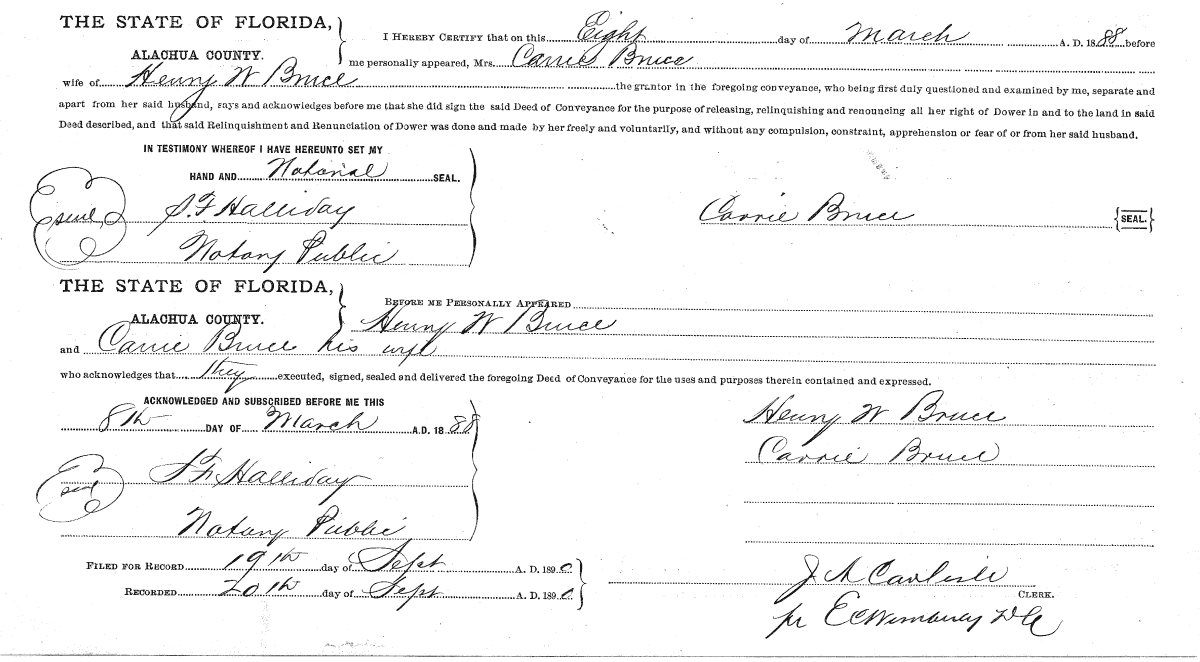 THE STATE OF FLORIDA,
ALACHUA COUNTY.
I HEREBY CERTIFY that on this Eight day of March A. D. 1888 before
me personally appeared, Mrs. Carrie Bruce
wife of Henry W Bruce the grantor in the foregoing conveyance, who being first duly questioned and examined by me, separate and
apart from her said husband, says and acknowledges before me that she did sign the said Deed of Conveyance for the purpose of releasing, relinquishing and renouncing all her right of Dower in and to the land in said
Deed described, and that said Relinquishment and Renunciation of Dower was done and made by her freely and voluntarily, and without any compulsion, constraint, apprehension or fear of or from her said husband.
IN TESTIMONY WHEREOF I HAVE HEREUNTO SET MY
HAND AND Notarial SEAL.
seal S.F Halliday
Carrie Bruce SEAL.
Notary Public
THE STATE OF FLORIDA,
ALACHUA COUNTY.
BEFORE ME PERSONALLY APPEARED
Henry W Bruce
and Carrie Bruce his wife
who acknowledges that they executed, signed, sealed and delivered the foregoing Deed of Conveyance for the uses and purposes therein contained and expressed.
ACKNOWLEDGED AND SUBSCRIBED BEFORE ME THIS
8th DAY OF March A.D. 1888
Henry W Bruce
Carrie Bruce
seal S.F. Halliday
Notary Public
FILED FOR RECORD 19th day of Sept A. D. 1890
RECORDED 20th day of Sept A. D. 1890
J A Carlisle
CLERK.
pr